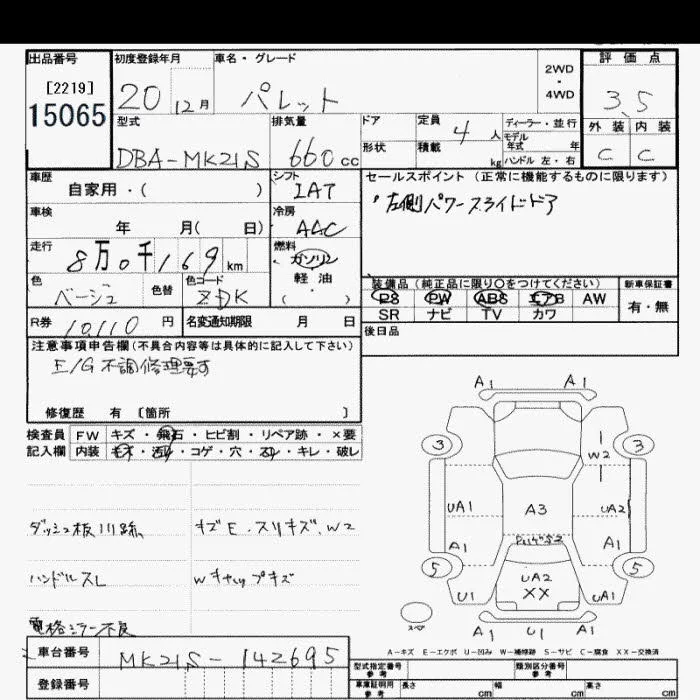 出品番号
[2219]
15065
初度登録年月
20 12月
車名・グレード
パレット
2WD
・
4WD
評価点
3.5
外装 内装
C C
型式
DBA-MK21S
排気量
660cc
ドア
形状
定員
4人
積載
kg
ディーラー・並行
モデル
年式 年
ハンドル 左・右
車歴
自家用・( )
シフト
IAT
セールスポイント (正常に機能するものに限ります)
左側パワースライドドア
車検
年 月( 日)
冷房
AAC
走行
8万0千169km
燃料
ガソリン
軽油
( )
色
ベージュ
色替
色コード
ZDK
装備品 (純正品に限り○をつけてください)
PS PW ABS エアB AW
SR ナビ TV カワ
新車保証書
有・無
R券
10,110円
名変通知期限 月 日
後日品
注意事項申告欄(不具合内容等は具体的に記入して下さい)
E/G不調修理要す
修復歴 有 〔箇所 〕
検査員
記入欄
FW キズ・飛石・ヒビ割・リペア跡・×要
内装 ・コゲ・穴・スレ・キレ・破レ
キズE.スリキズ.W2
ハンドルスレ
Wキャップキズ
電格ミラー不良
A1 A1
3 3
W2
UA1 A3 UA2
A1 A1
5 5
UA2
XX
U1 UA1
A1 U1 A1
スペア
A-キズ E-エクボ U-凹み W-補修跡 S-サビ C-腐食 XX-交換済
車台番号
MK21S-142695
登録番号
型式指定番号
参考
類別区分番号
参考
車庫証明用
参考
長さ cm 幅 cm 高さ cm